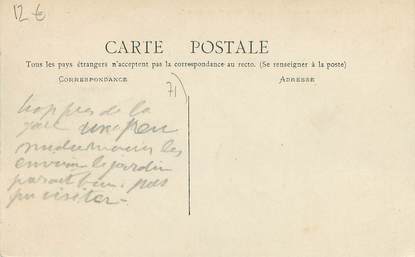 12 €
CARTE POSTALE
Tous les pays étrangers n'acceptent pas la correspondance au recto. (Se renseigner à la poste)
CORRESPONDANCE
ADRESSE
71
trop pres de la
gare un peu
les
environ le jardin
parait bien pas
pu visiter